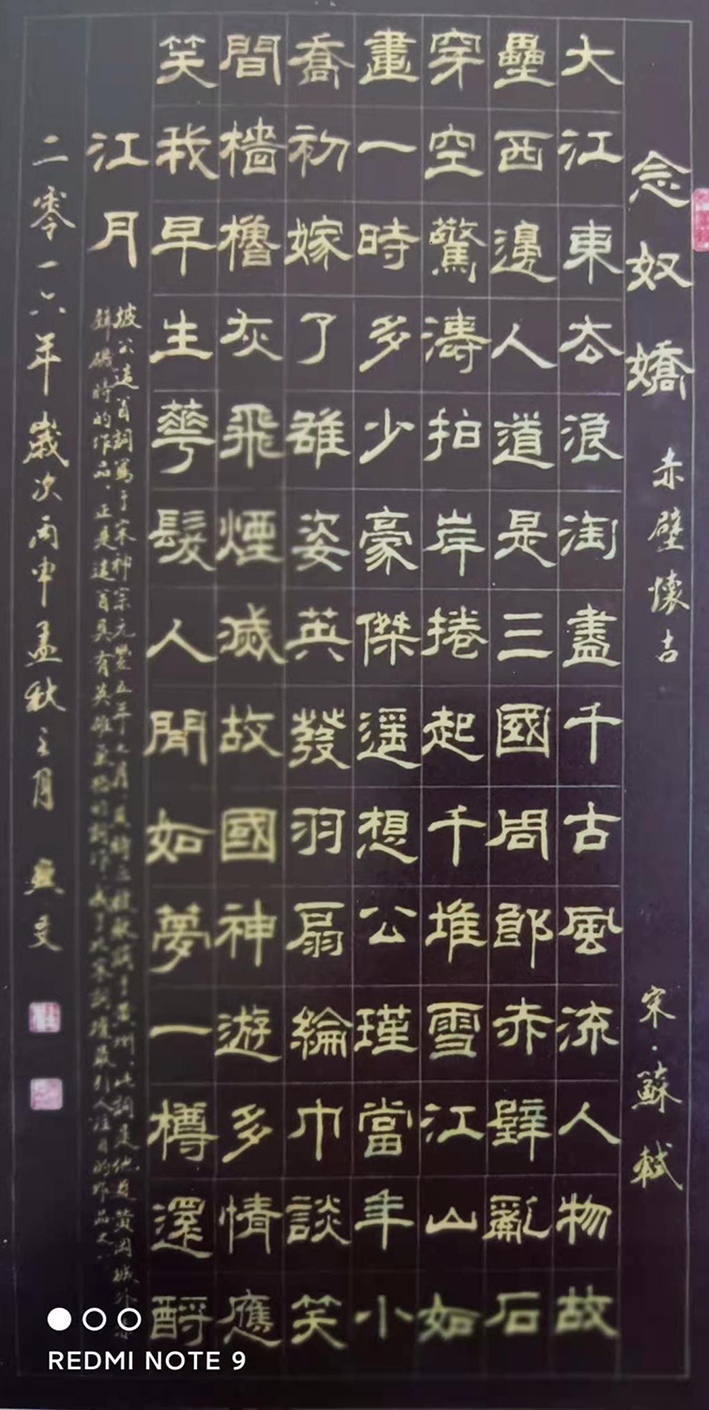 念奴嬌 赤壁懷古 宋·蘇軾
大江東去浪淘盡千古風流人物故
壘西邊人道是三國周郎赤壁亂石
穿空驚濤拍岸捲起千堆雪江山如
畫一時多少豪傑遥想公瑾當年小
喬初嫁了雄姿英發羽扇綸巾談笑
間檣櫓灰飛煙滅故國神遊多情應
笑我早生華髮人間如夢一樽還酹
江月
坡公這首詞寫于宋神宗元豐五年七月
壁磯時的作品，正是這首具有英雄氣格的詞作
二零一六年歲次丙申孟秋之月
REDMI NOTE 9